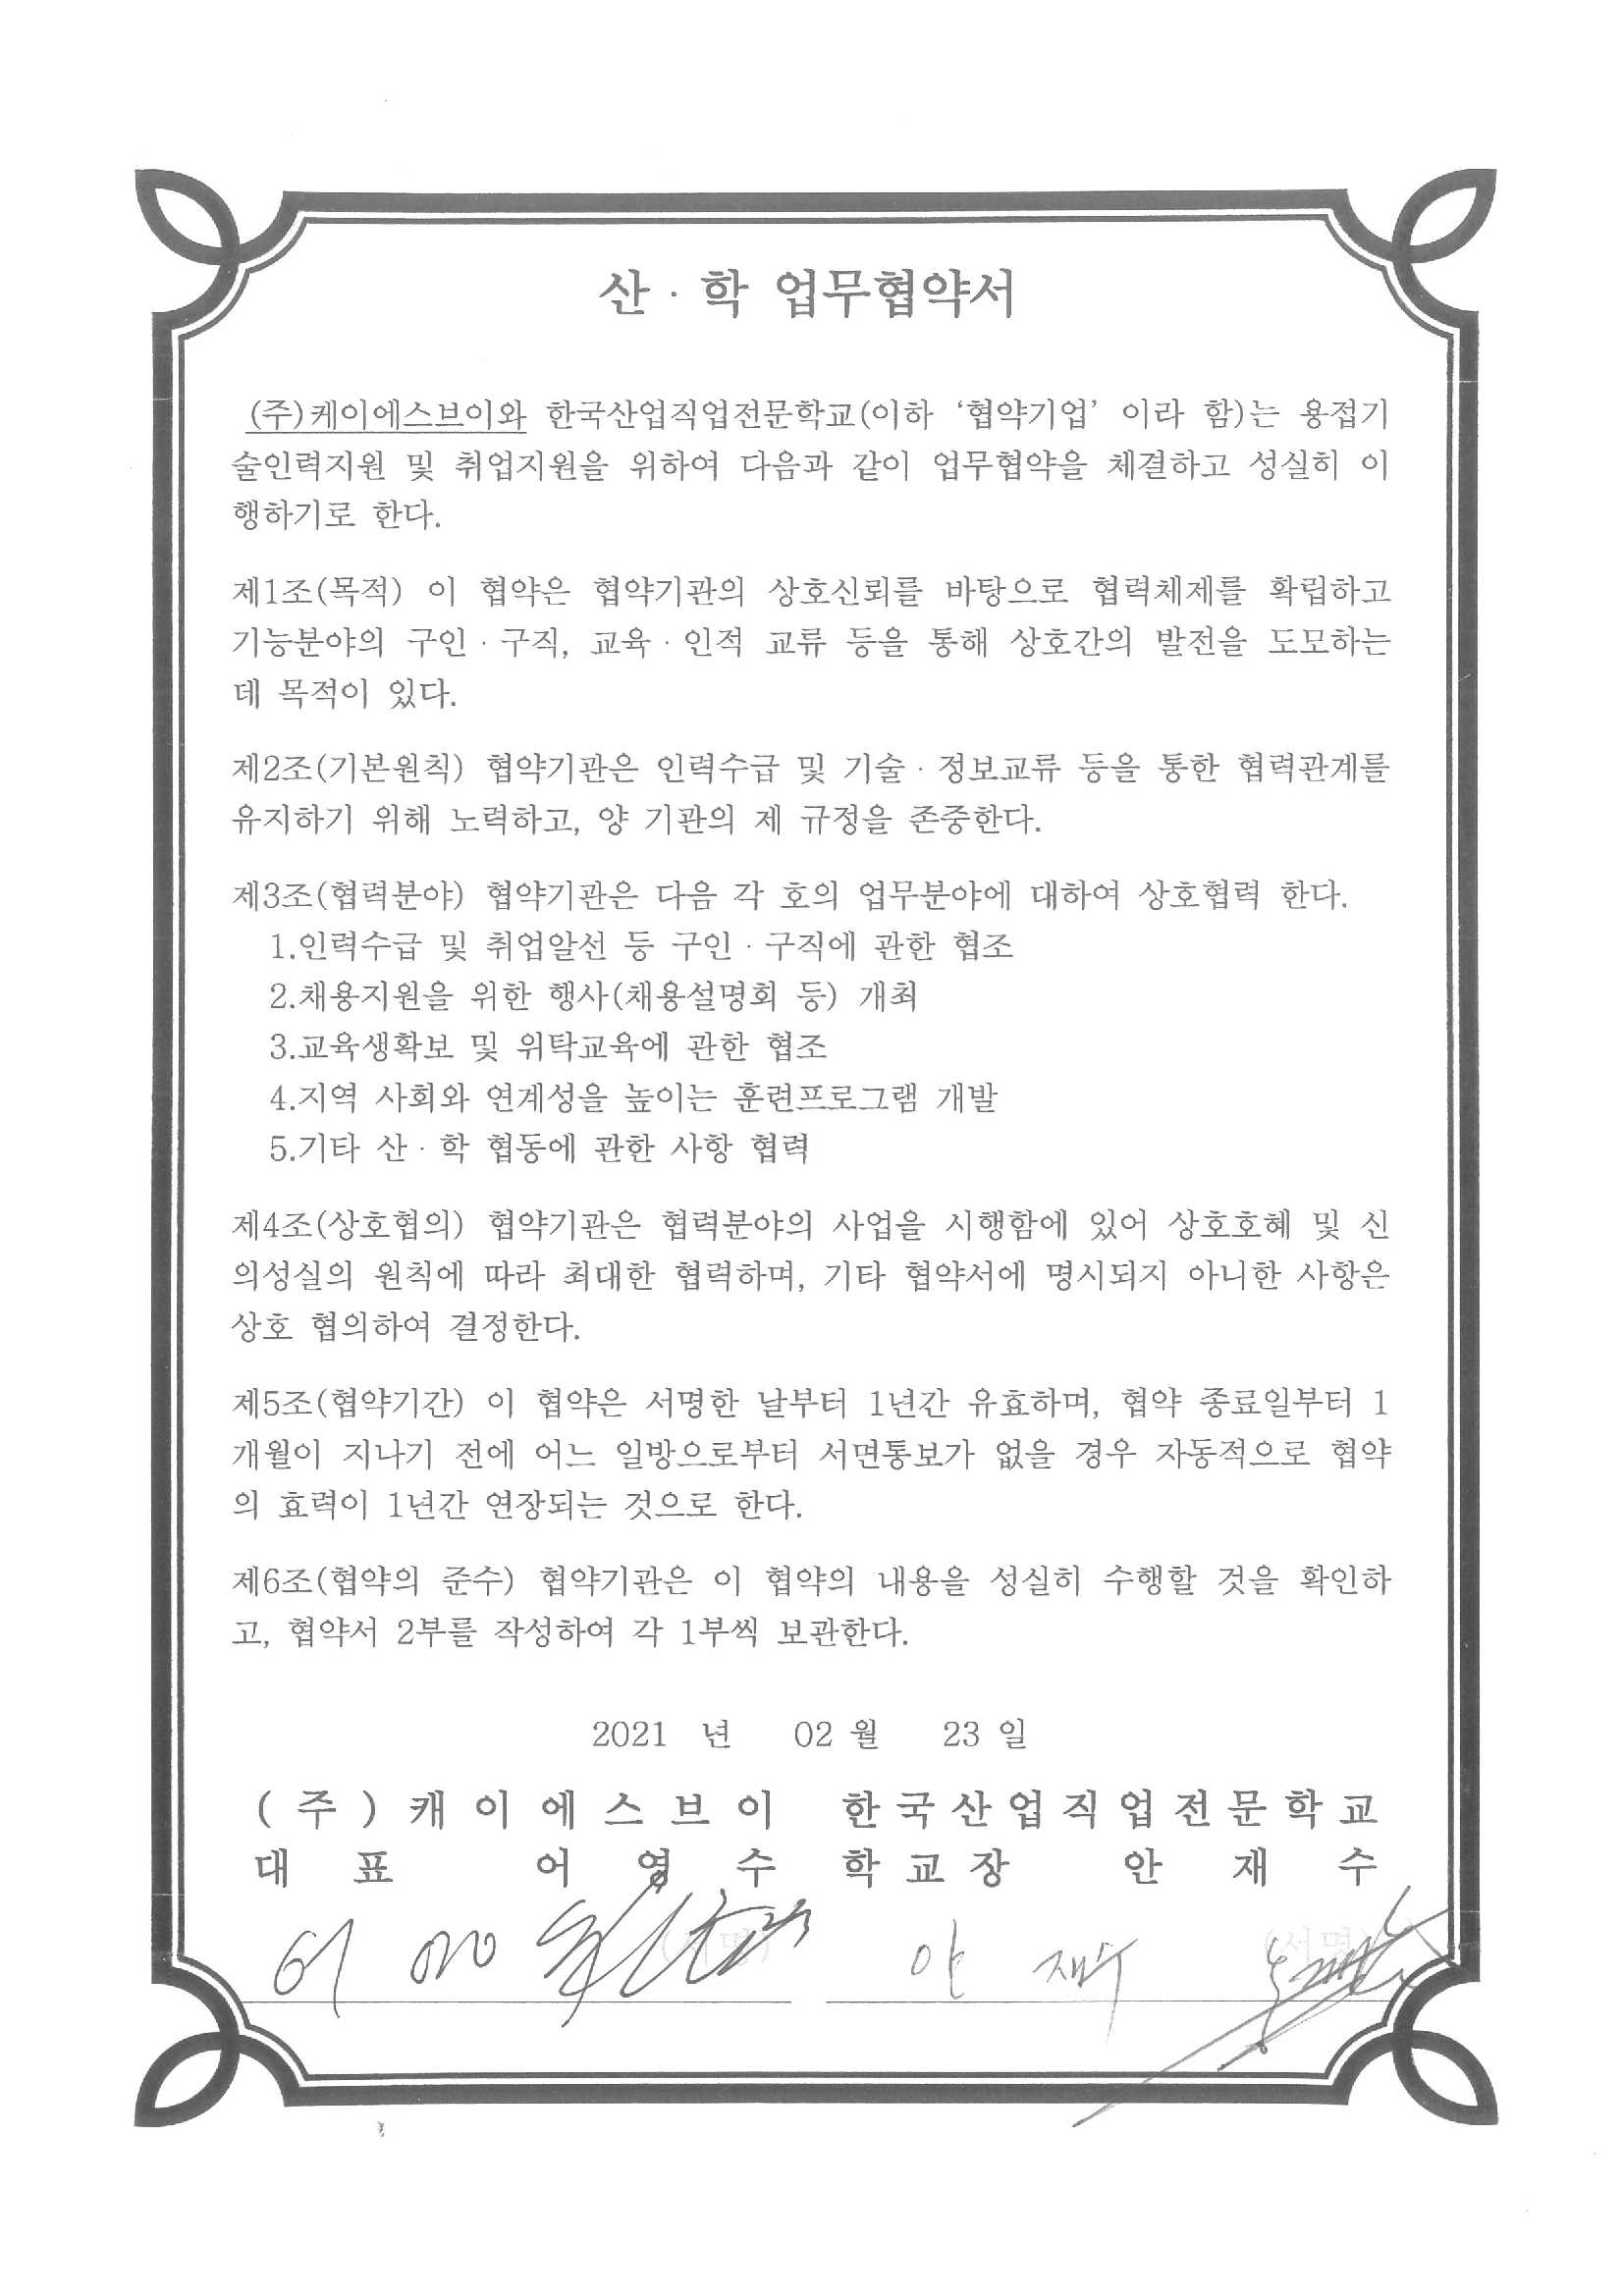 산 · 학 업무협약서
(주)케이에스브이와 한국산업직업전문학교(이하 ‘협약기업’ 이라 함)는 용접기
술인력지원 및 취업지원을 위하여 다음과 같이 업무협약을 체결하고 성실히 이
행하기로 한다.
제1조(목적) 이 협약은 협약기관의 상호신뢰를 바탕으로 협력체제를 확립하고
기능분야의 구인 · 구직, 교육 · 인적 교류 등을 통해 상호간의 발전을 도모하는
데 목적이 있다.
제2조(기본원칙) 협약기관은 인력수급 및 기술 · 정보교류 등을 통한 협력관계를
유지하기 위해 노력하고, 양 기관의 제 규정을 존중한다.
제3조(협력분야) 협약기관은 다음 각 호의 업무분야에 대하여 상호협력 한다.
1.인력수급 및 취업알선 등 구인 · 구직에 관한 협조
2.채용지원을 위한 행사(채용설명회 등) 개최
3.교육생확보 및 위탁교육에 관한 협조
4.지역 사회와 연계성을 높이는 훈련프로그램 개발
5.기타 산 · 학 협동에 관한 사항 협력
제4조(상호협의) 협약기관은 협력분야의 사업을 시행함에 있어 상호호혜 및 신
의성실의 원칙에 따라 최대한 협력하며, 기타 협약서에 명시되지 아니한 사항은
상호 협의하여 결정한다.
제5조(협약기간) 이 협약은 서명한 날부터 1년간 유효하며, 협약 종료일부터 1
개월이 지나기 전에 어느 일방으로부터 서면통보가 없을 경우 자동적으로 협약
의 효력이 1년간 연장되는 것으로 한다.
제6조(협약의 준수) 협약기관은 이 협약의 내용을 성실히 수행할 것을 확인하
고, 협약서 2부를 작성하여 각 1부씩 보관한다.
2021 년 02 월 23 일
(주)캐이에스브이 한국산업직업전문학교
대 표 어 영 수 학교장 안 재 수
(서명) 안 재수 (서명)